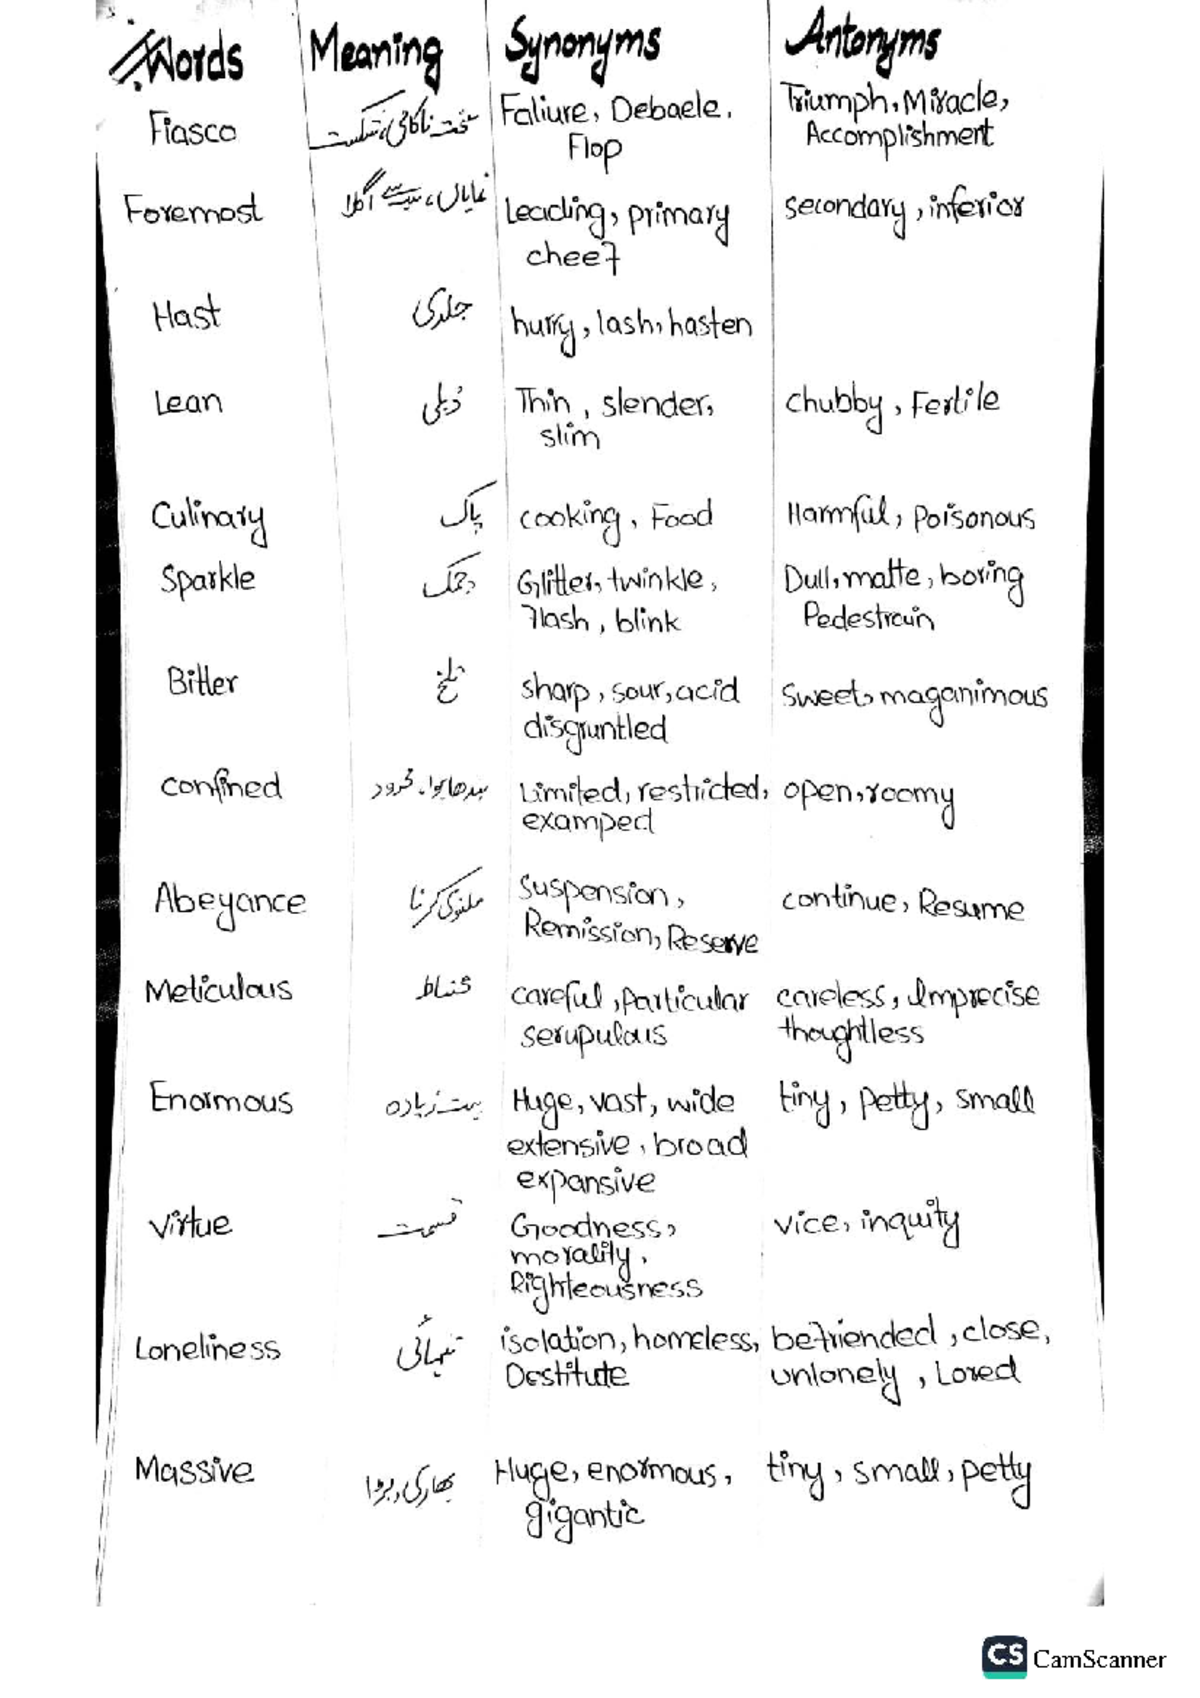 Words Meaning Synonyms Antonyms
Fiasco سخت ناکامی، شکست Faliure, Debacle, Triumph, Miracle,
Flop Accomplishment
Foremost نمایاں، سب سے اگلا Leading, primary secondary, inferior
cheef
Hast جلدی hurry, lash, hasten
Lean دبلی Thin, slender, chubby, Fertile
slim
Culinary پاک cooking, Food Harmful, Poisonous
Sparkle چمک Glitter, twinkle, Dull, matte, boring
flash, blink Pedestrain
Bitter تلخ sharp, sour, acid Sweet, maganimous
disgruntled
confined بندھا ہوا، محدود Limited, restricted, open, roomy
examped
Abeyance ملتوی کرنا Suspension, continue, Resume
Remission, Reserve
Meticulous محتاط careful, particular careless, Imprecise
scrupulous thoughtless
Enormous بہت زیادہ Huge, vast, wide tiny, petty, small
extensive, broad
expansive
Virtue قسمت Goodness, vice, inquity
morality,
Righteousness
Loneliness تنہائی isolation, homeless, befriended, close,
Destitute unlonely, Loved
Massive بھاری، بڑا Huge, enormous, tiny, small, petty
gigantic
CS CamScanner